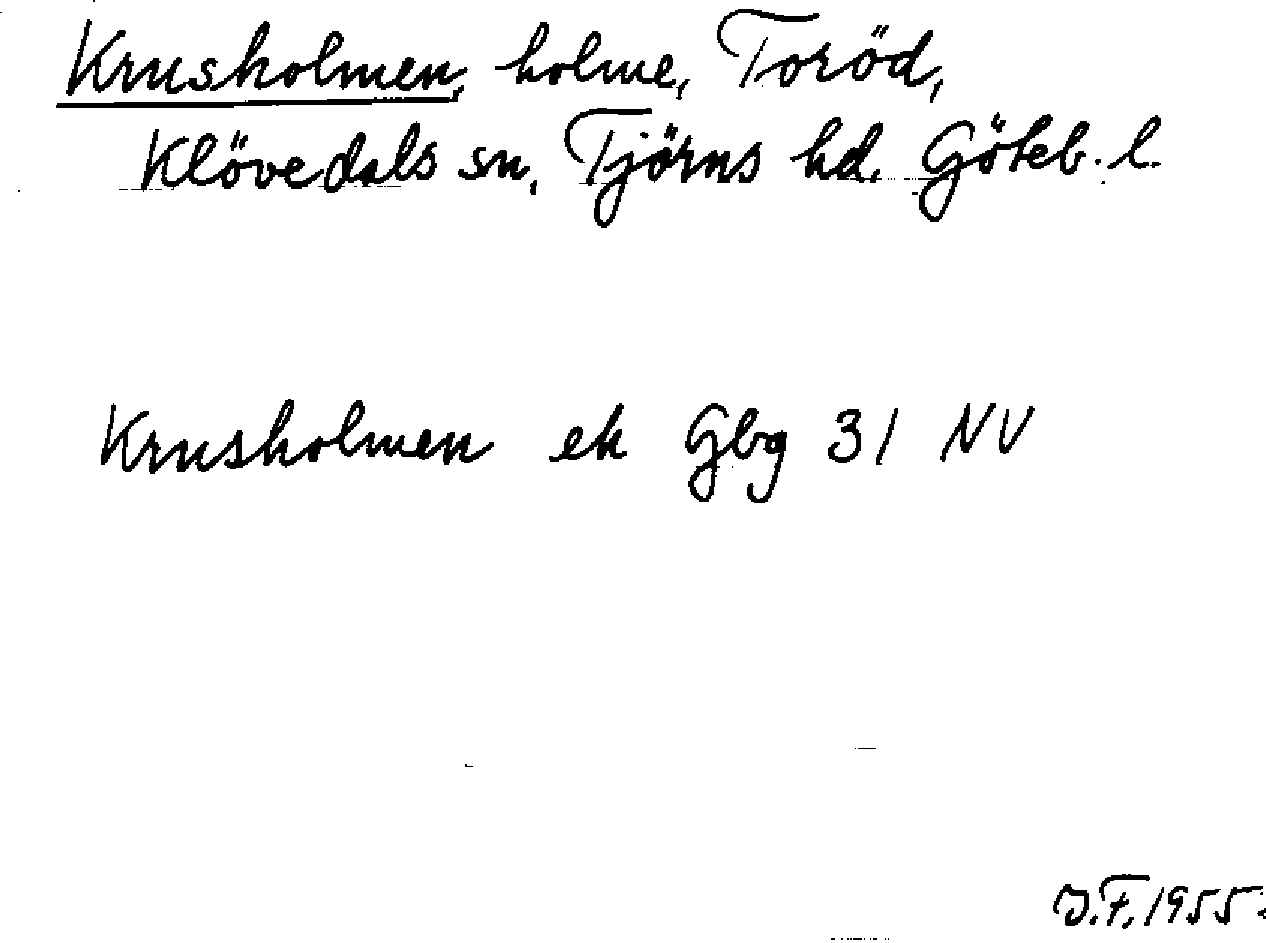 Krusholmen, holme, Toröd,
Klövedals sn, Tjörns hd. Göteb. l.
Krusholmen ek Gbg 31 NV
J.F. 1955.